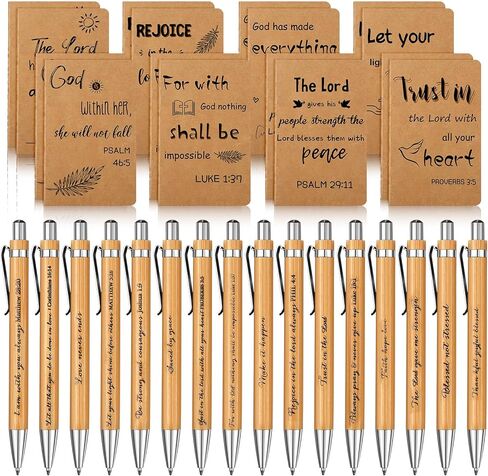 The Lord
REJOICE
in the
God has made
everything
Let your
God
within her,
she will not fall
PSALM
46:5
For with
God nothing
shall be
impossible
LUKE 1:37
The Lord
gives his
people strength the
Lord blesses them with
peace
PSALM 29:11
Trust in
the Lord with
all your
heart
PROVERBS 3:5
I am with you always Matthew 28:20
Let all that you do be done in love 1 Corinthians 16:14
Love never ends
Let your light shine before others MATTHEW 5:16
Be strong and courageous Joshua 1:9
Saved by grace
Trust in the Lord with all your heart PROVERBS 3:5
For with God nothing shall be impossible LUKE 1:37
Make it happen
Rejoice in the Lord always PHIL 4:4
Trust in the Lord
Always pray & never give up LUKE 18:1
Faith hope love
The Lord gave me strength
Blessed not stressed
Thankful joyful blessed